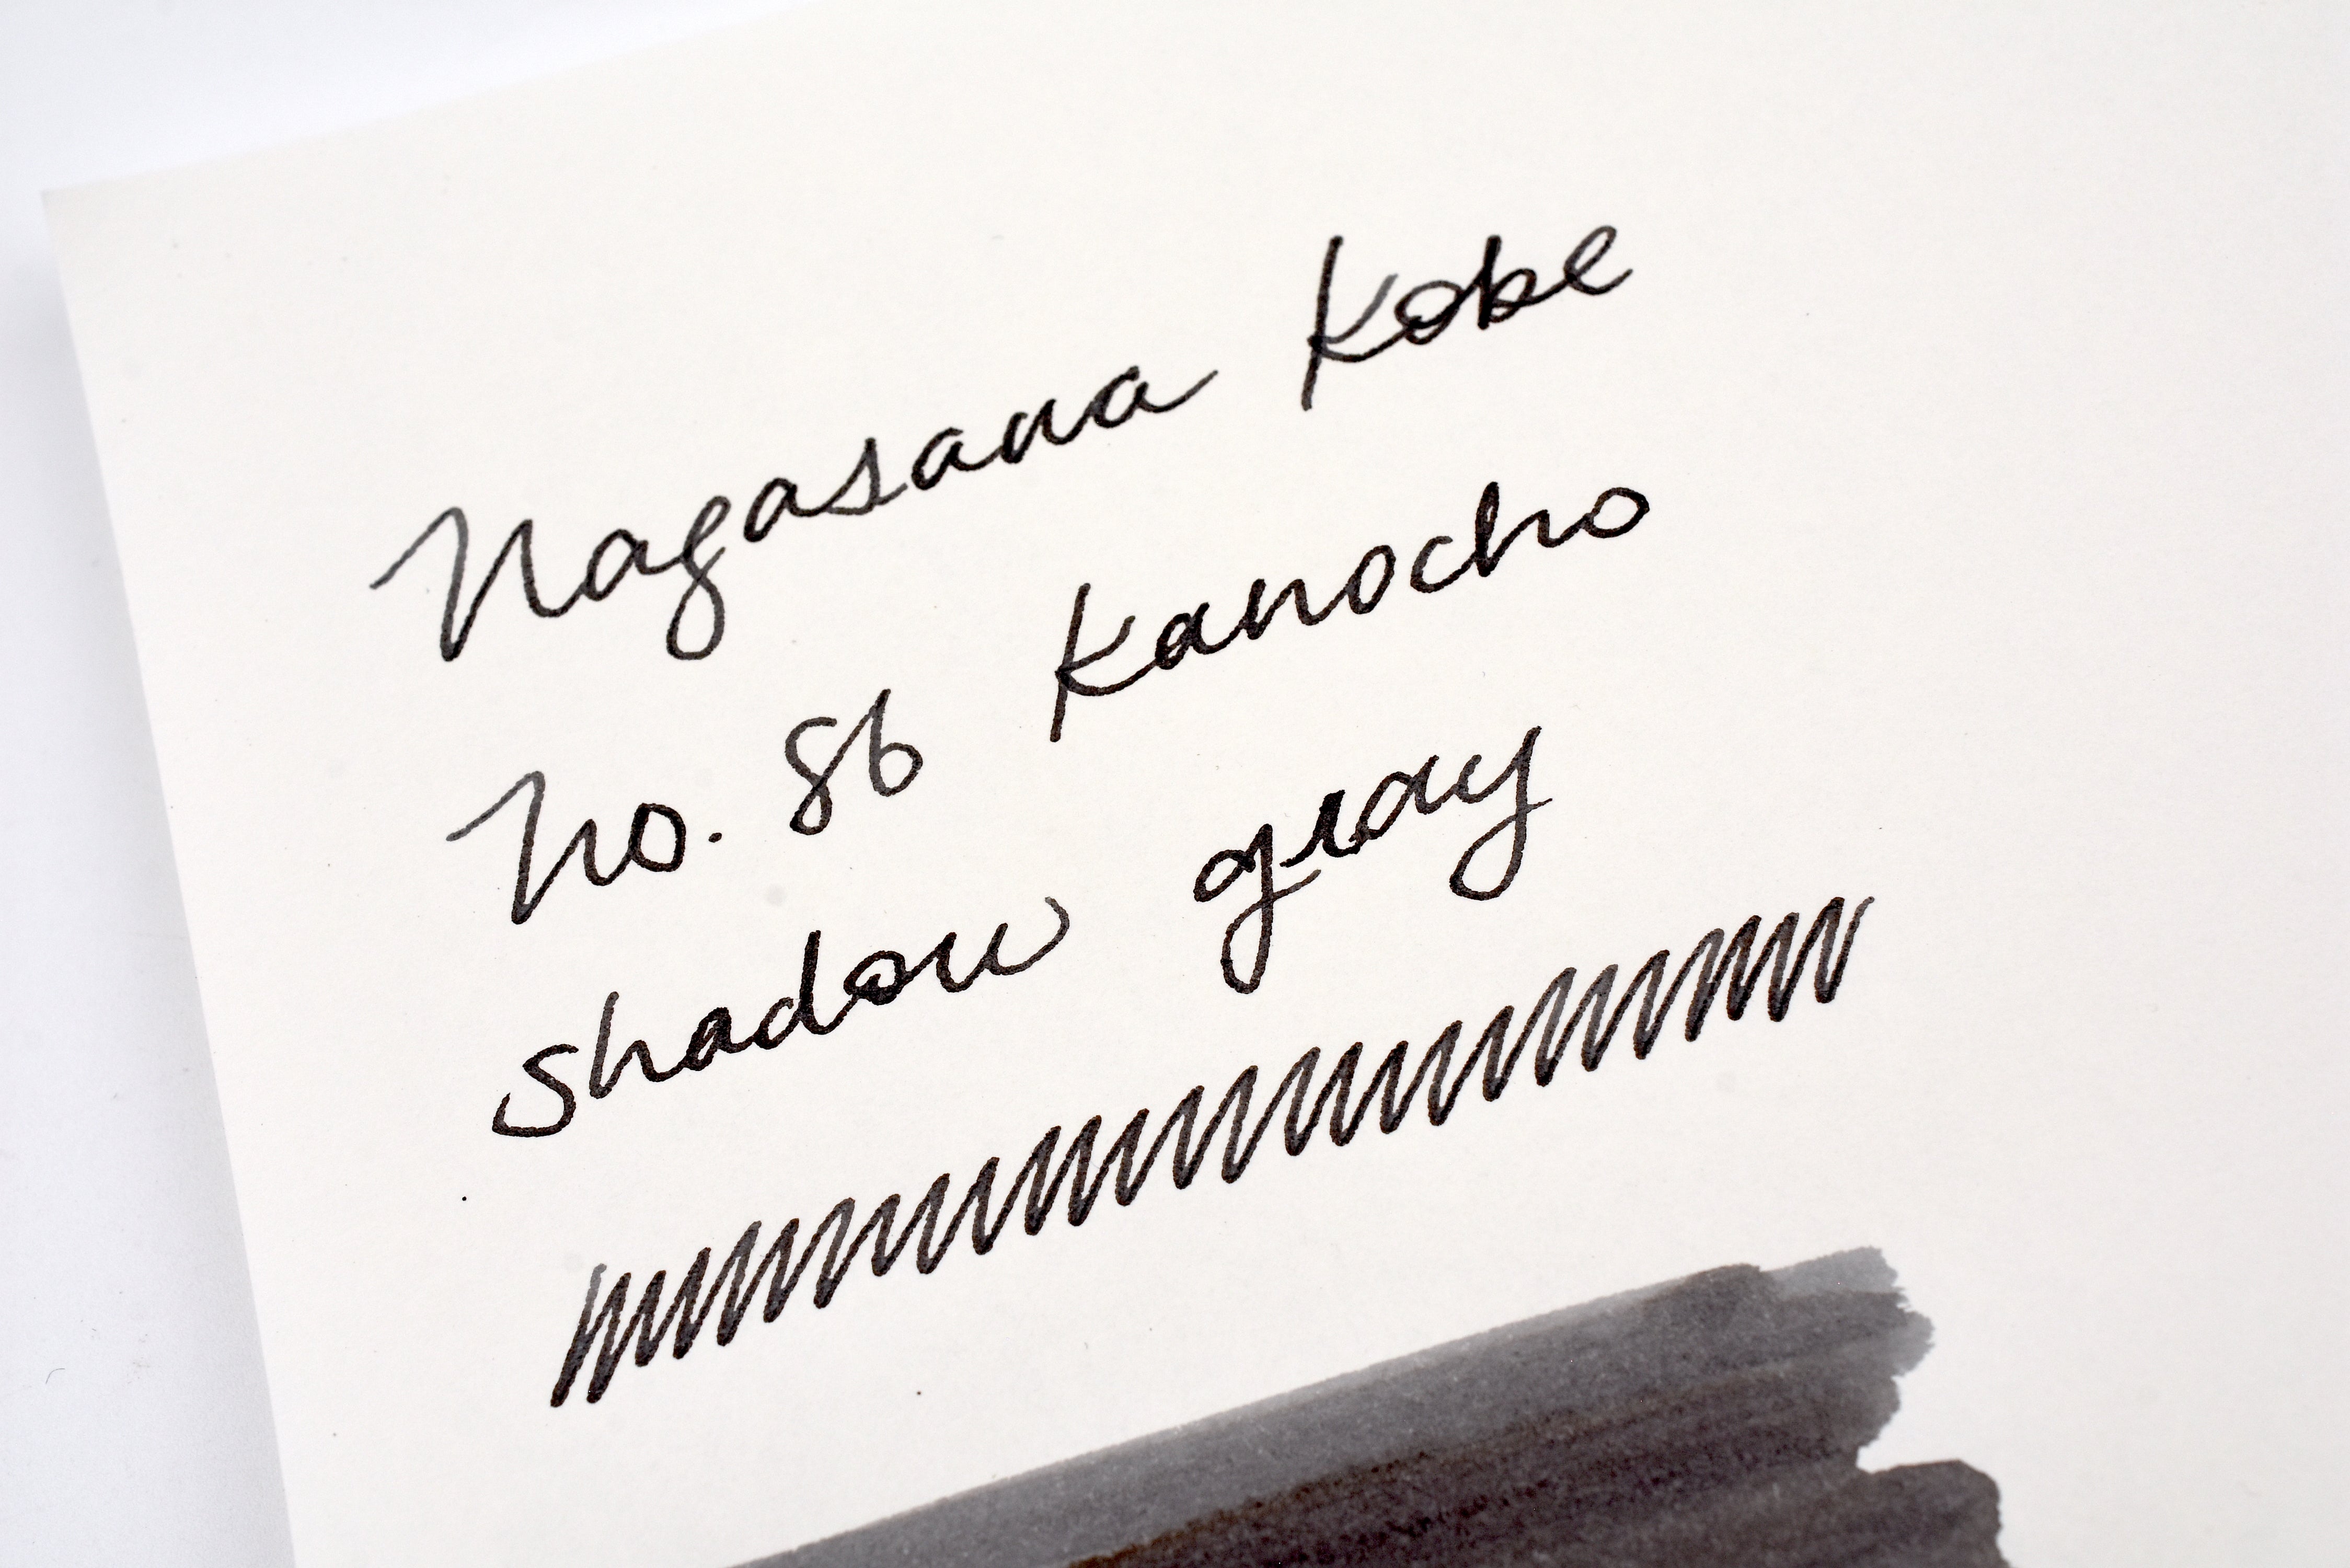 Nagasawa Kobe
No. 86 Kanocho
Shadow gray